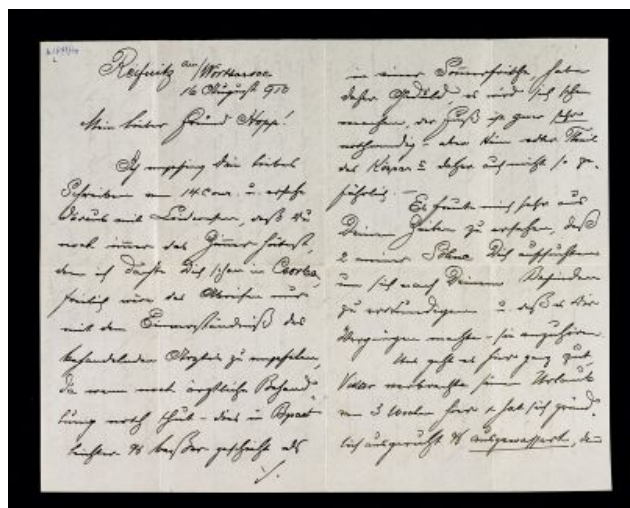 Reifnitz am/Wörthersee
16 August 910
Mein lieber Freund Hopp!
Ich empfing Dein liebes
Schreiben vom 14 cour. u. ersehe
daraus mit Bedauern, daß Du
noch immer das Zimmer hütest,
denn ich dachte Dich schon in Csorba,
freilich wäre das Abreisen nur
mit dem Einverständniß des
behandelnden Arztes zu empfehlen,
da wenn noch ärztliche Behand
lung noth thut - dies in Bpest
leichter & besser geschieht als
./.
in einer Sommerfrische, habe
daher Geduld, es wird sich schon
machen, der Fuß ist zwar sehr
nothwendig - aber kein edler Theil
des Körpers daher auch nicht so ge-
fährlich. -
Es freute mich sehr aus
Deinen Zeilen zu ersehen, daß
2 meiner Söhne Dich aufsuchten
um sich nach Deinem Befinden
zu erkundigen u. daß es Dir
Vergnügen machte - sie anzuhören.
Uns geht es hier ganz gut,
verbrachte seinen Urlaub
von 3 Wochen hier & hat sich gründ-
lich ausgeruht & ausgewassert, den